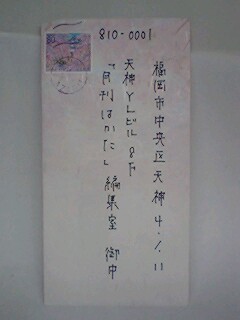 810-0001
福岡市中央区天神4.1.11
天神YLビル8F
「月刊はかた」編集室 御中
80